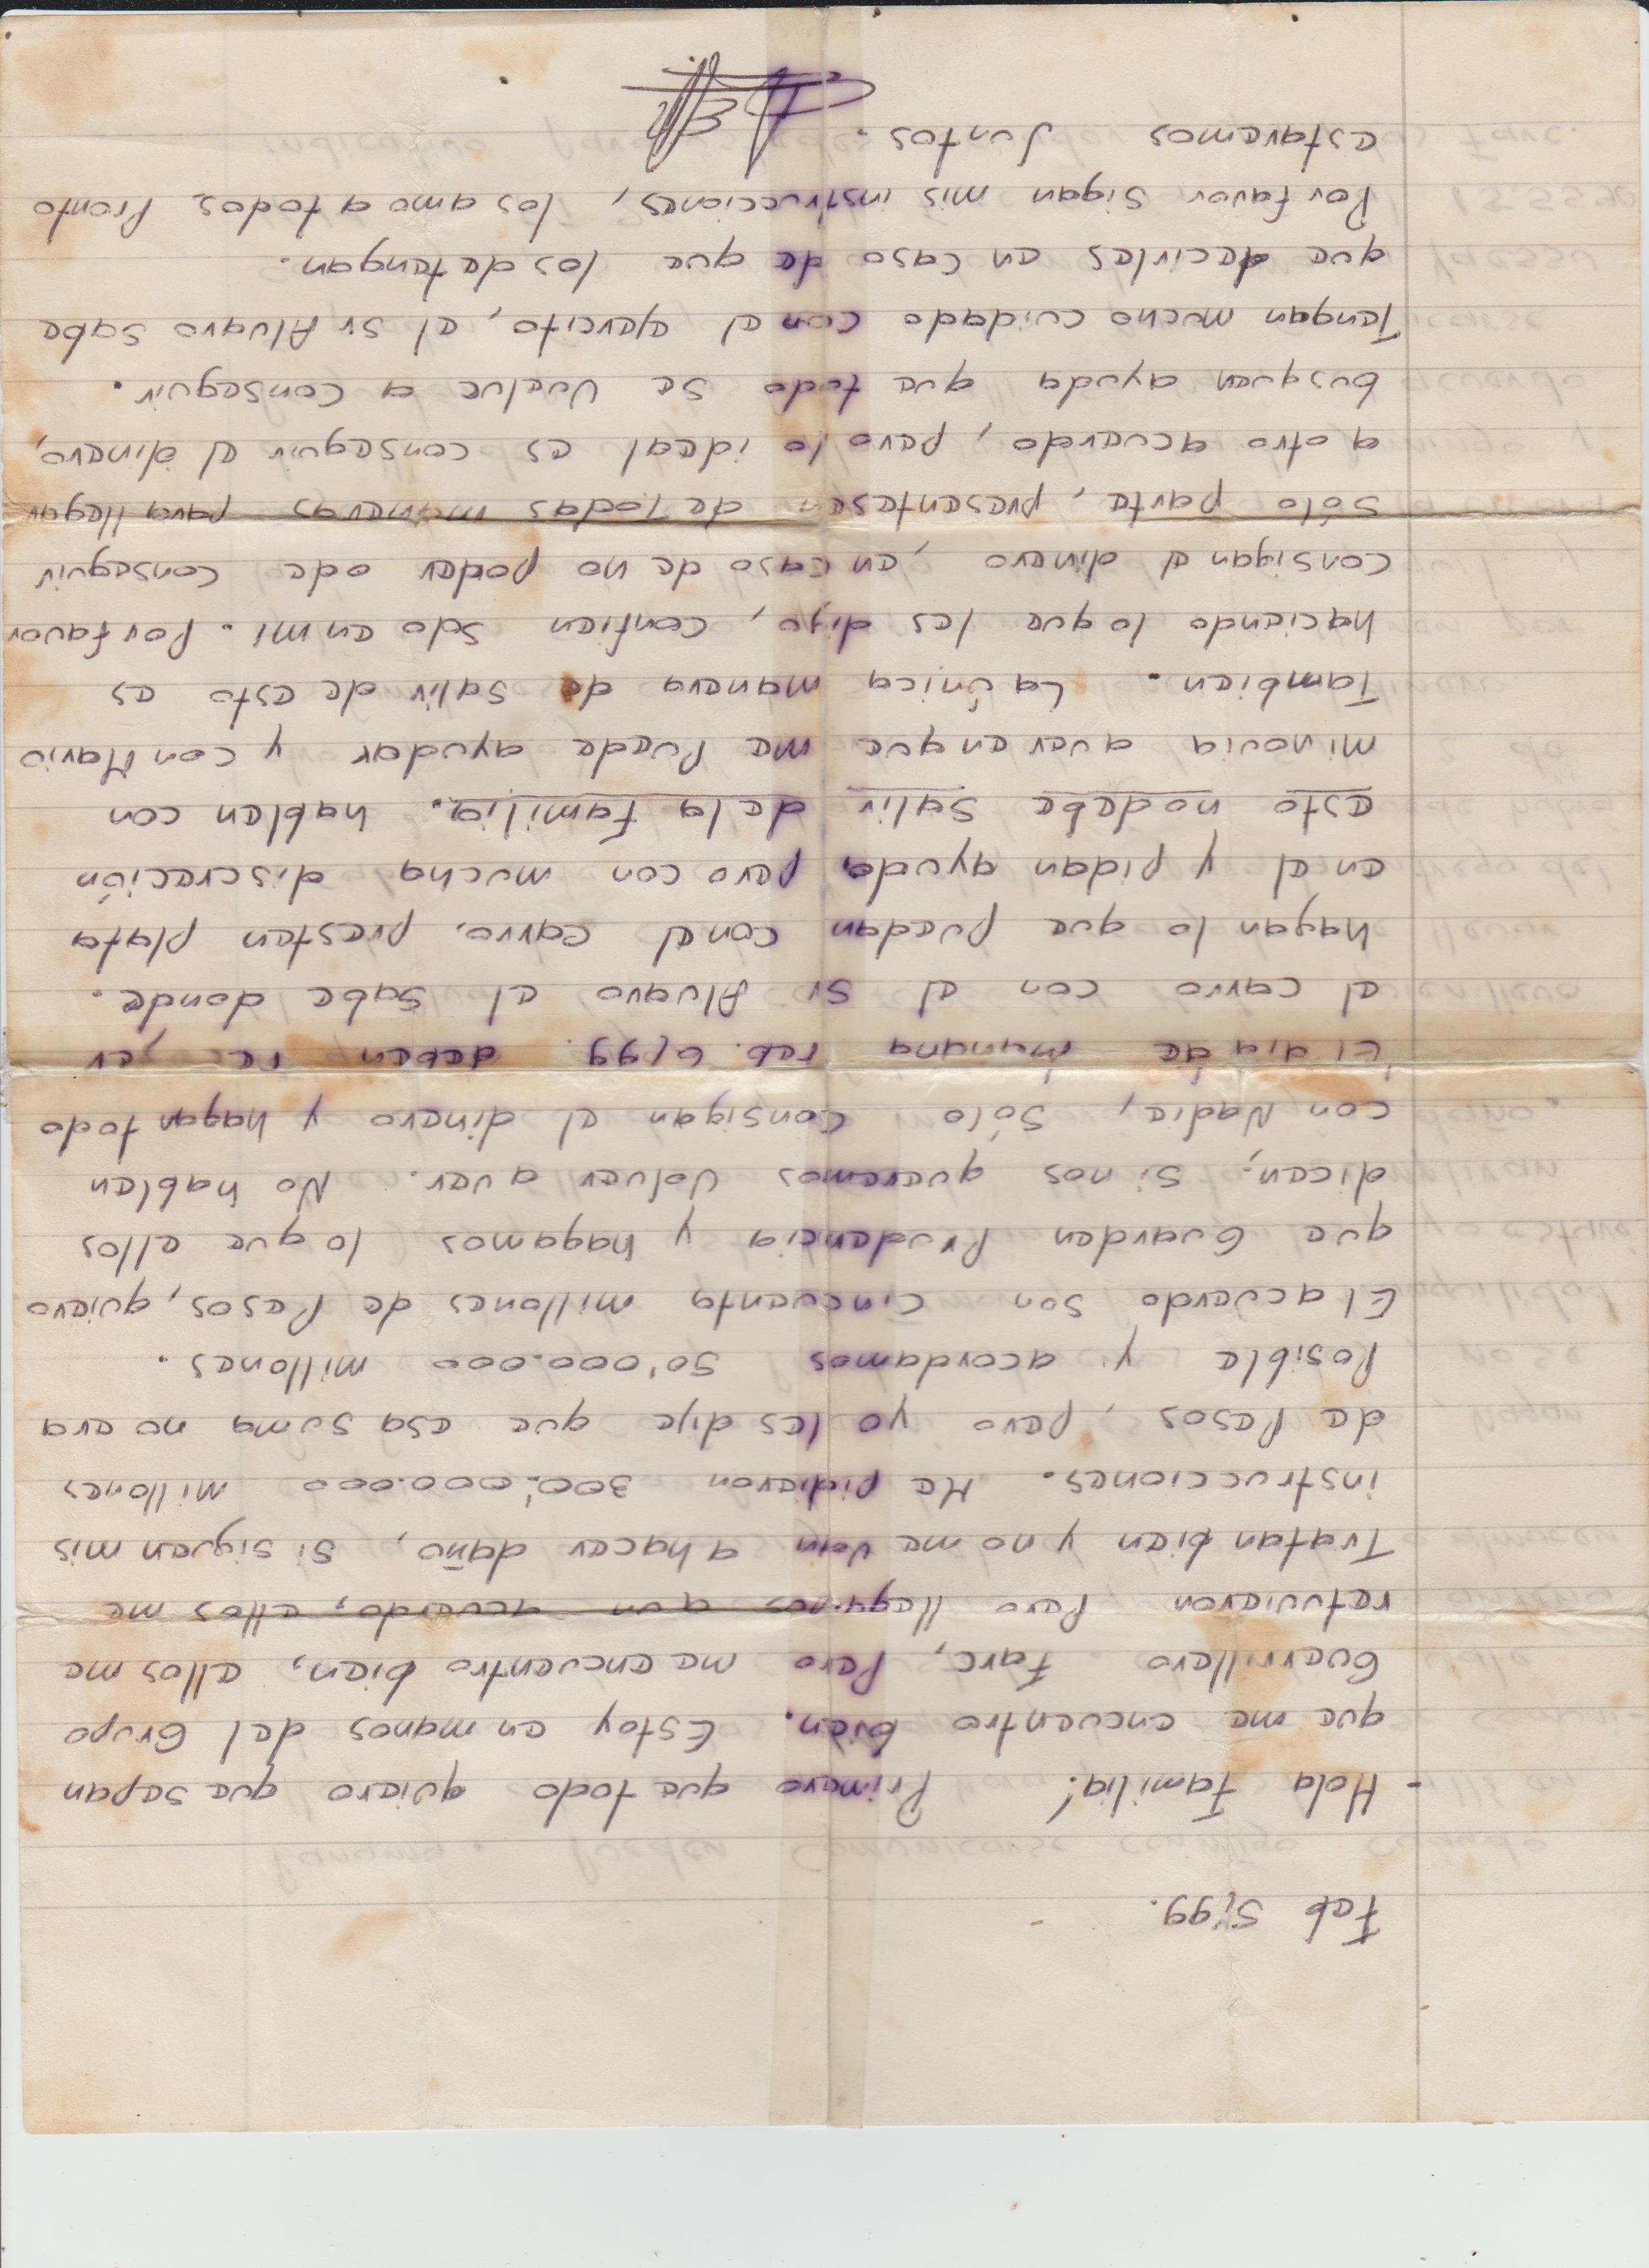 Feb 5/99.
- Hola Familia! Primero que todo quiero que sepan
que me encuentro bien. Estoy en manos del Grupo
Guerrillero Farc, Pero me encuentro bien, ellos me
retuvieron Pero llegamos a un acuerdo, ellos me
Tratan bien y no me van a hacer daño, si siguen mis
instrucciones. Me pidieron 300'.000.000 millones
de Pesos, Pero yo les dije que esa suma no era
Posible y acordamos 50'000.000 millones.
El acuerdo son cincuenta millones de Pesos, quiero
que Guarden Prudencia y hagamos lo que ellos
dicen, si nos queremos volver a ver. No hablen
con Nadie, sólo consigan el dinero y hagan todo
El dia de mañana Feb. 6/99. deben recoger
el carro con el sr Alvaro el sabe donde.
hagan lo que puedan con el carro, presten plata
en el y pidan ayuda pero con mucha discreción
esto no debe salir de la familia. hablen con
mi novia a ver en que me Puede ayudar y con Mario
Tambien. La única manera de salir de esto es
haciendo lo que les digo, confien solo en mi. Por favor
consigan el dinero, en caso de no poder o de conseguir
sólo parte, presentesen de todas maneras para llegar
a otro acuerdo, pero lo ideal es conseguir el dinero,
busquen ayuda que todo se vuelve a conseguir.
Tengan mucho cuidado con el ejercito, el sr Alvaro sabe
que decirles en caso de que los detengan.
Por favor sigan mis instrucciones, los amo a todos. Pronto
estaremos Juntos.